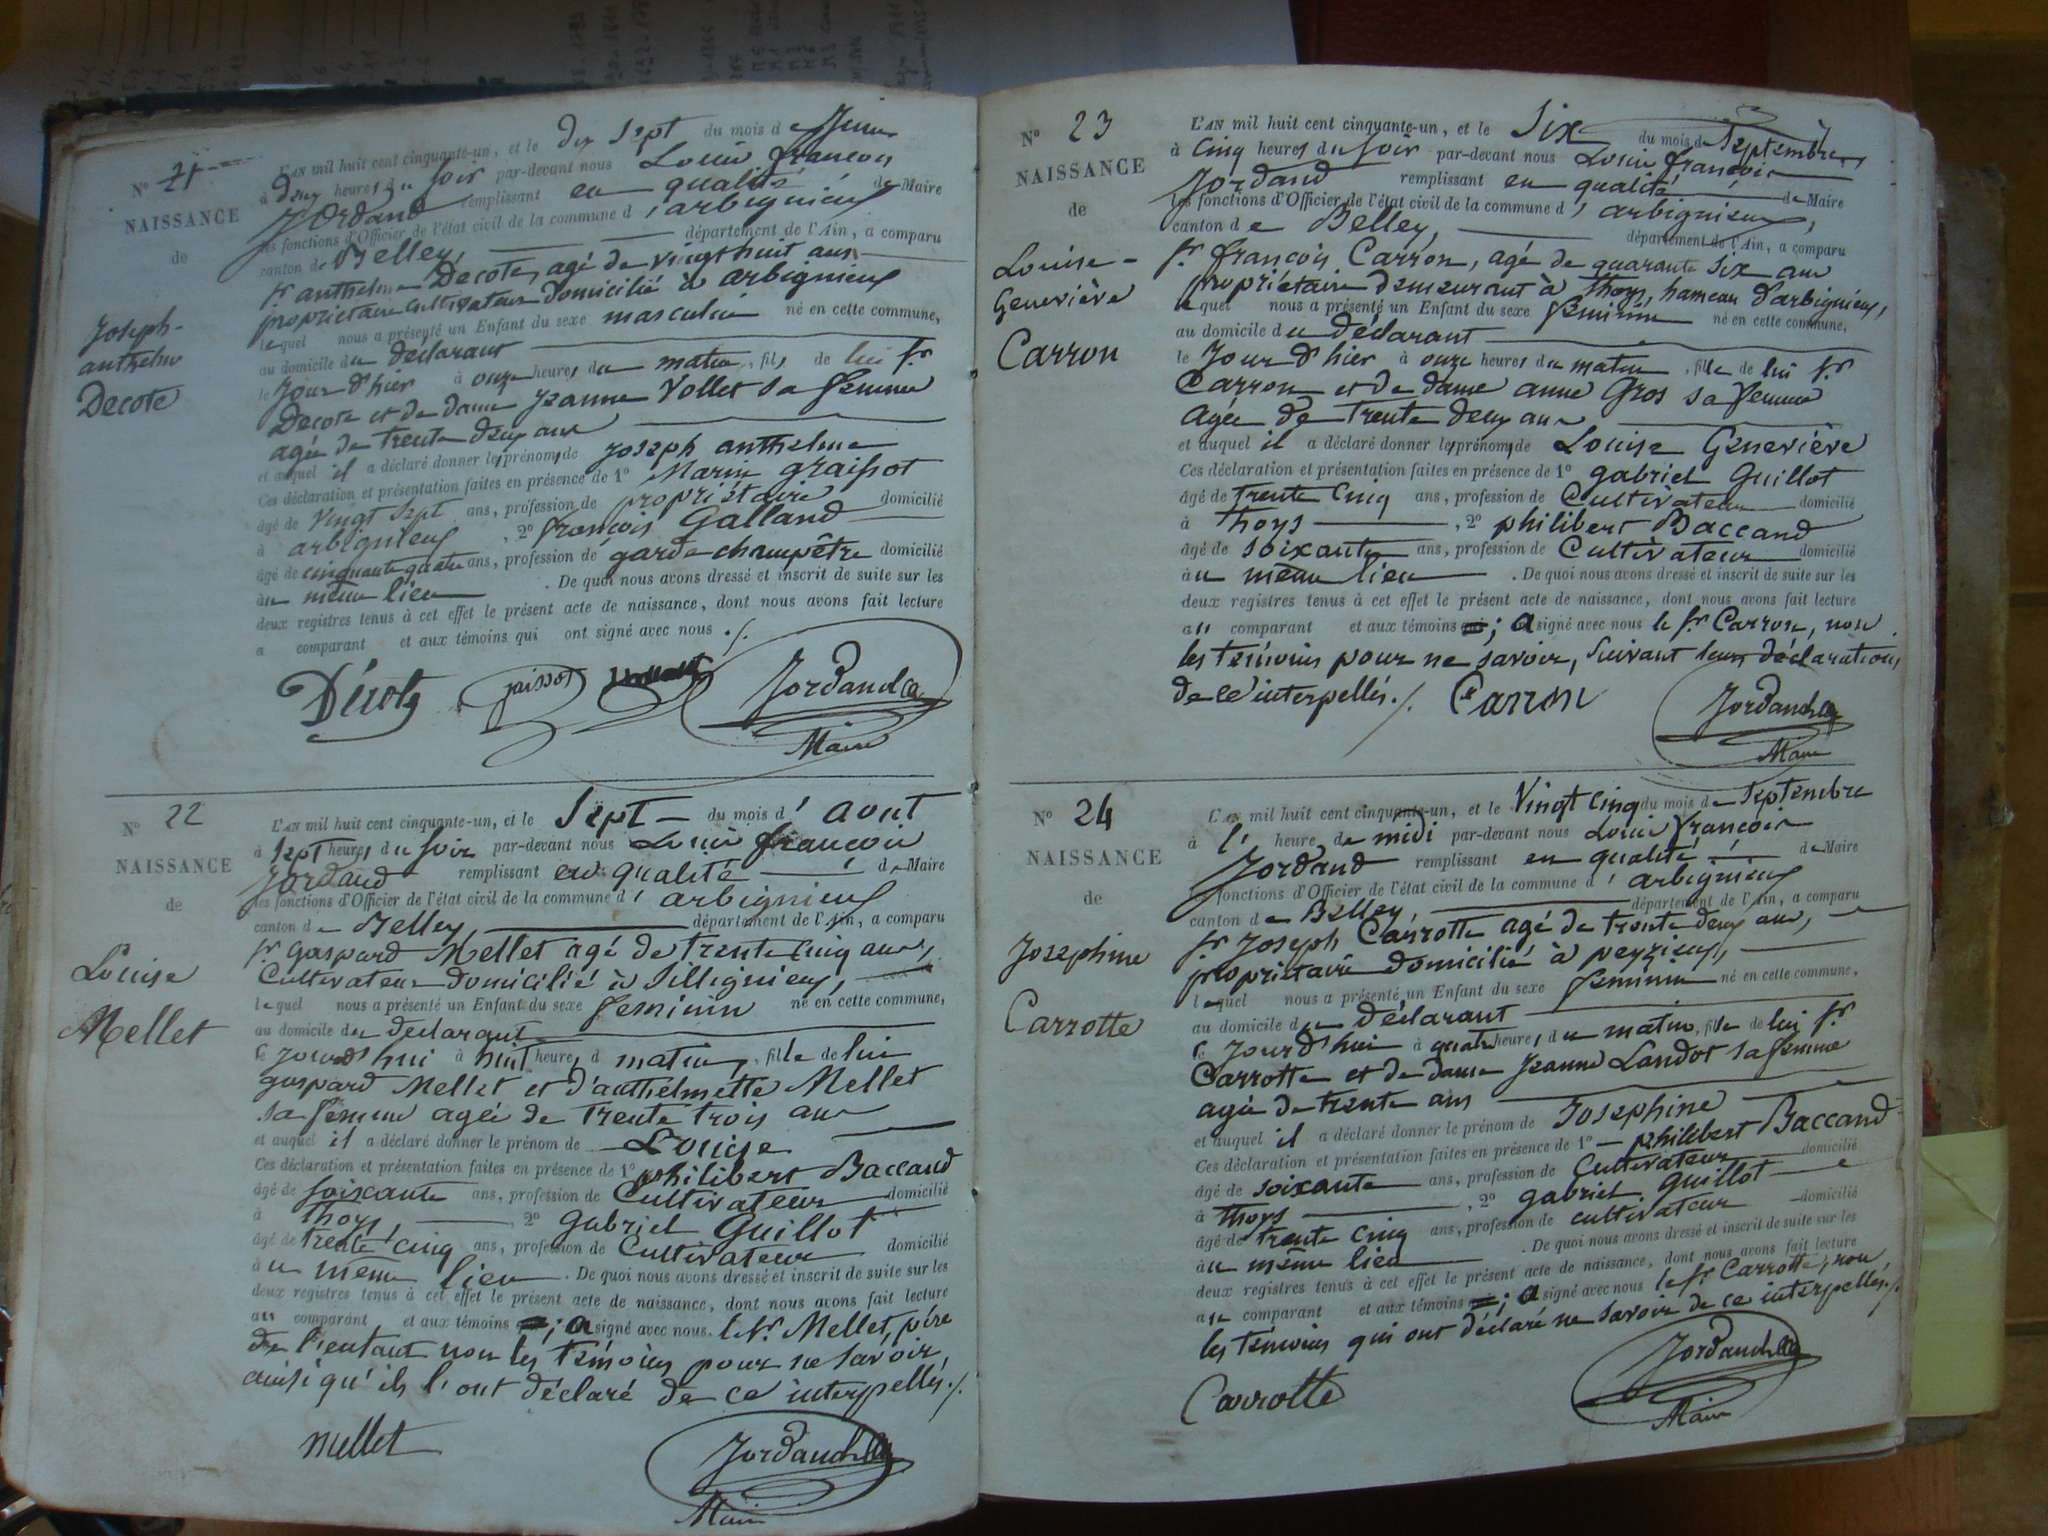 N° 21
NAISSANCE
de
Joseph-
anthelme
Decote
L'AN mil huit cent cinquante-un, et le dix sept du mois de Juin
à deux heures du soir par-devant nous Louis françois
Jordand remplissant en qualité de Maire
les fonctions d'Officier de l'état civil de la commune d'arbignieux
canton de Belley, département de l'Ain, a comparu
sr anthelme Decote, agé de vingt huit ans
propriétaire cultivateur domicilié à arbignieux
lequel nous a présenté un Enfant du sexe masculin né en cette commune,
au domicile du déclarant
le Jour d'hier à onze heures du matin, fils de lui sr
Decote et de dame Jeanne Vollet sa femme
agée de trente deux ans
et auquel il a déclaré donner les prénoms de Joseph anthelme
Ces déclaration et présentation faites en présence de 1° Marin graissot
âgé de vingt sept ans, profession de propriétaire domicilié
à arbignieux, 2° françois Galland
âgé de cinquante quatre ans, profession de garde champêtre domicilié
au même lieu. De quoi nous avons dressé et inscrit de suite sur les
deux registres tenus à cet effet le présent acte de naissance, dont nous avons fait lecture
a comparant et aux témoins qui ont signé avec nous ./.
Décote Jordand
Maire
N° 22
NAISSANCE
de
Louise
Mellet
L'AN mil huit cent cinquante-un, et le Sept du mois d'aout
à sept heures du soir par-devant nous Louis françois
Jordand remplissant en qualité de Maire
les fonctions d'Officier de l'état civil de la commune d'arbignieux
canton de Belley, département de l'Ain, a comparu
sr gaspard Mellet agé de trente cinq ans,
cultivateur domicilié à Sillignieux,
lequel nous a présenté un Enfant du sexe feminin né en cette commune,
au domicile du déclarant
le jourd'hui à huit heures d matin, fille de lui
gaspard Mellet et d'anthelmette Mellet
sa femme agée de trente trois ans
et auquel il a déclaré donner le prénom de Louise
Ces déclaration et présentation faites en présence de 1° philibert Baccand
âgé de soixante ans, profession de Cultivateur domicilié
à thoys, 2° gabriel Guillot
âgé de trente cinq ans, profession de Cultivateur domicilié
au même lieu. De quoi nous avons dressé et inscrit de suite sur les
deux registres tenus à cet effet le présent acte de naissance, dont nous avons fait lecture
au comparant et aux témoins ; a signé avec nous. le sr Mellet, père
de l'enfant non les témoins pour ne savoir
ainsi qu'ils l'ont déclaré de ce interpellés ./.
mellet Jordand
Maire
N° 23
NAISSANCE
de
Louise-
Geneviève
Carron
L'AN mil huit cent cinquante-un, et le Six du mois de Septembre
à cinq heures du soir par-devant nous Louis françois
Jordand remplissant en qualité de Maire
les fonctions d'Officier de l'état civil de la commune d'arbignieux,
canton de Belley, département de l'Ain, a comparu
sr françois Carron, agé de quarante six ans
propriétaire demeurant à thoys, hameau d'arbignieux,
lequel nous a présenté un Enfant du sexe feminin né en cette commune,
au domicile du déclarant
le Jour d'hier à onze heures du matin, fille de lui sr
Carron et de dame anne Gros sa femme
agée de trente deux ans
et auquel il a déclaré donner les prénoms de Louise Geneviève
Ces déclaration et présentation faites en présence de 1° gabriel Guillot
âgé de trente cinq ans, profession de Cultivateur domicilié
à thoys, 2° philibert Baccand
âgé de soixante ans, profession de Cultivateur domicilié
au même lieu. De quoi nous avons dressé et inscrit de suite sur les
deux registres tenus à cet effet le présent acte de naissance, dont nous avons fait lecture
au comparant et aux témoins ; a signé avec nous le sr Carron, non
les témoins pour ne savoir, suivant leurs déclarations
de ce interpellés ./. Carron Jordand
Maire
N° 24
NAISSANCE
de
Josephine
Carrotte
L'AN mil huit cent cinquante-un, et le Vingt cinq du mois de Septembre
à l' heure de midi par-devant nous Louis françois
Jordand remplissant en qualité de Maire
les fonctions d'Officier de l'état civil de la commune d'arbignieux
canton de Belley, département de l'Ain, a comparu
sr Joseph Carrotte agé de trente deux ans,
propriétaire domicilié à peyzieux,
lequel nous a présenté un Enfant du sexe feminin né en cette commune,
au domicile du déclarant
le Jourd'hui à quatre heures du matin, fille de lui sr
Carrotte et de dame Jeanne Landot sa femme
agée de trente ans
et auquel il a déclaré donner le prénom de Josephine
Ces déclaration et présentation faites en présence de 1° philibert Baccand
âgé de soixante ans, profession de Cultivateur domicilié
à thoys, 2° gabriel guillot
âgé de trente cinq ans, profession de cultivateur domicilié
au même lieu. De quoi nous avons dressé et inscrit de suite sur les
deux registres tenus à cet effet le présent acte de naissance, dont nous avons fait lecture
au comparant et aux témoins ; a signé avec nous le sr Carrotte, non
les témoins qui ont déclaré ne savoir de ce interpellés ./.
Carrotte Jordand
Maire